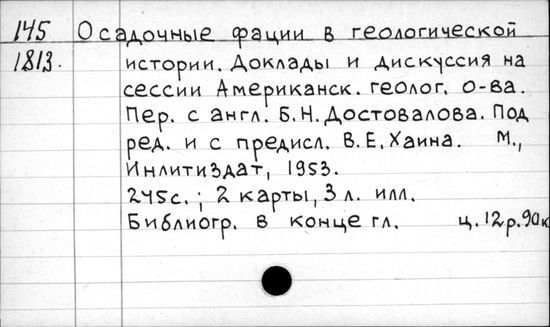 145 Осадочные фации в геологической
1813. истории. Доклады и дискуссия на
сессии Американск. геолог. о-ва.
Пер. с англ. Б.Н. Достовалова. Под
ред. и с предисл. В.Е. Хаина. М.,
Инлитиздат, 1953.
245с.; 2 карты, 3 л. илл.
Библиогр. в конце гл. ц. 12 р. 90 к